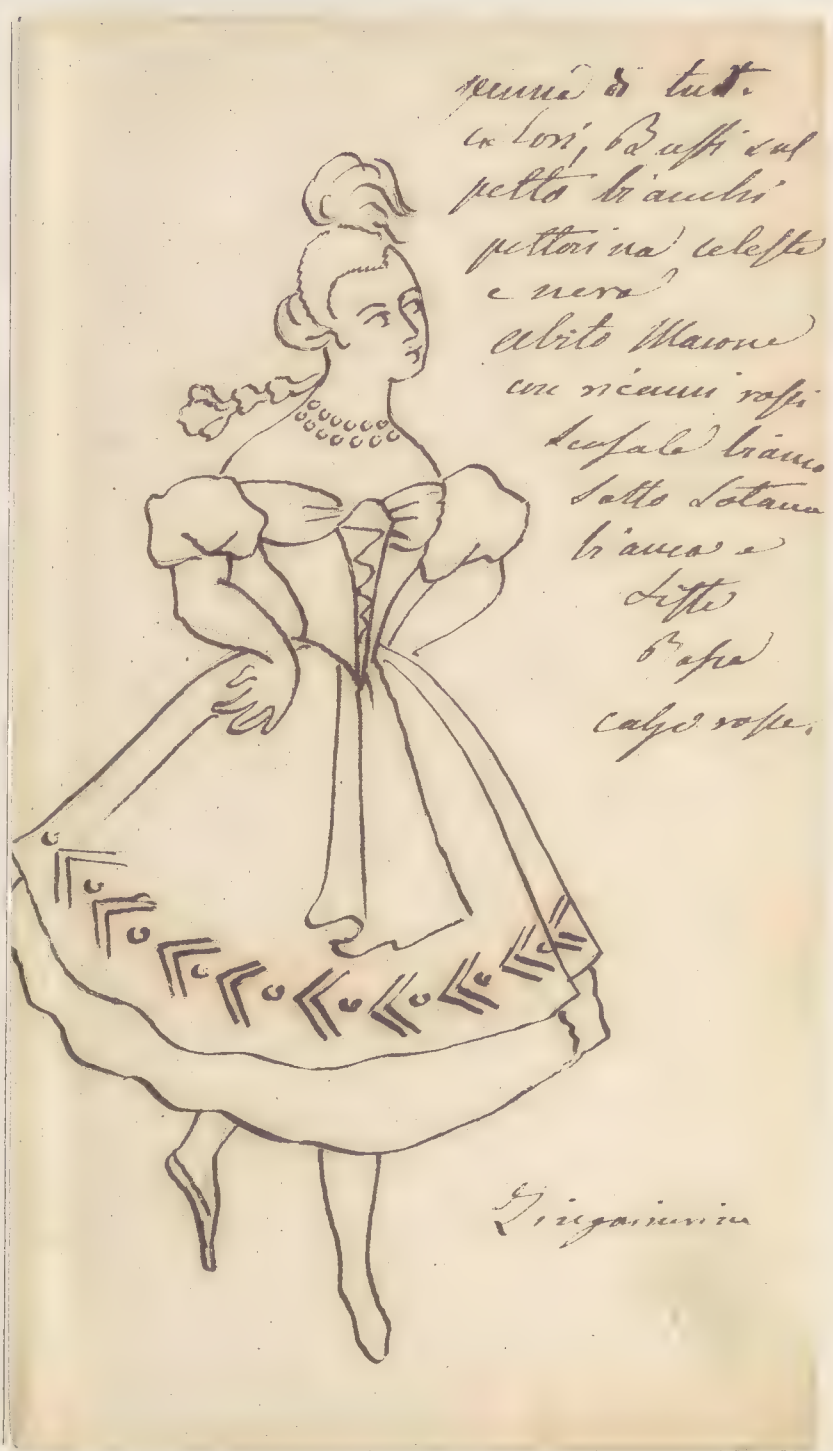 penne di tutt.
colori, Buffi sul
petto bianchi
pettorina celeste
e nera
abito Marone
con ricami rossi
scosale bianco
sotto Sotana
bianca e
liste
calze rosse.